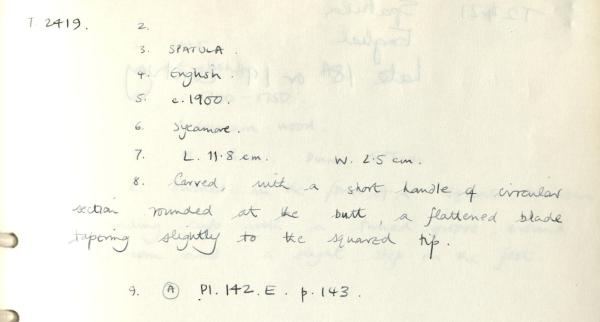 T 2419. 2.
3. SPATULA.
4. English.
5. c.1900.
6. Sycamore.
7. L. 11.8 cm. W. 2.5 cm.
8. Carved, with a short handle of circular
section rounded at the butt, a flattened blade
tapering slightly to the squared tip.
9. (A) Pl. 142. E. p. 143.